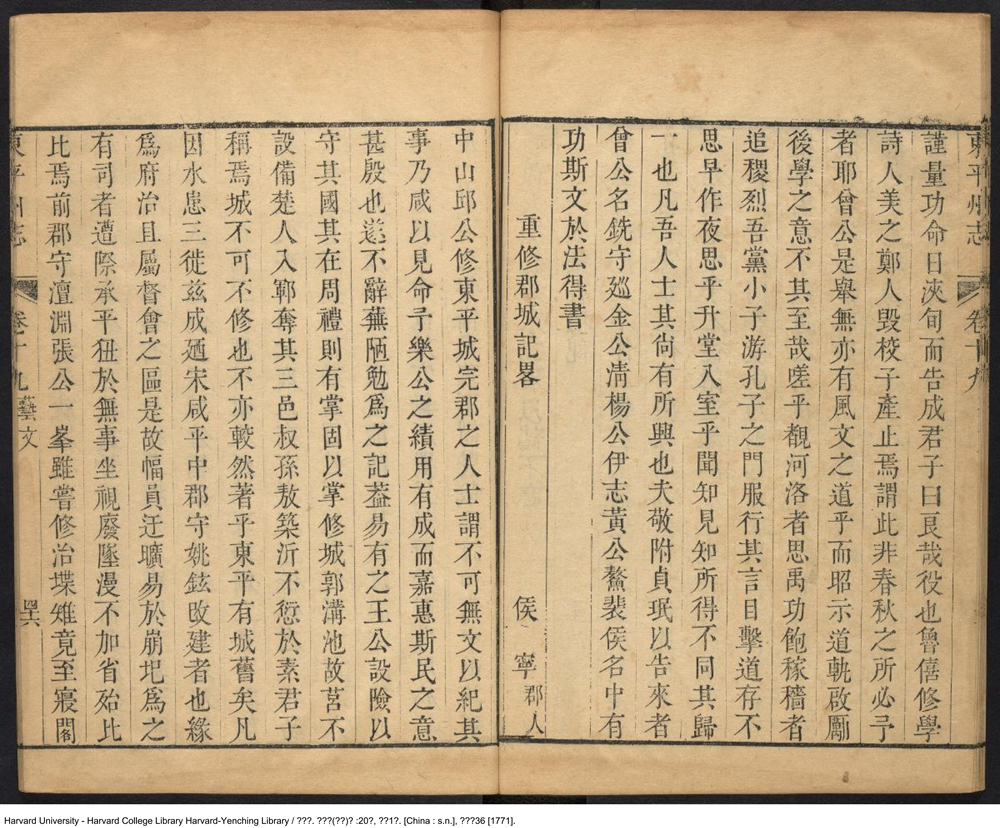 東平州志
卷十九
謹量功命日浹旬而告成君子曰良哉役也魯僖修學
詩人美之鄭人毁校子產止焉謂此非春秋之所必予
者耶曾公是舉無亦有風文之道乎而昭示道軌啟勵
後學之意不其至哉嗟乎覩河洛者思禹功飽稼穡者
追稷烈吾黨小子游孔子之門服行其言目擊道存不
思早作夜思乎升堂入室乎聞知見知所得不同其歸
一也凡吾人士其尙有所興也夫敬附貞珉以告來者
曾公名銑守廵金公淸楊公伊志黃公鰲裴侯名中有
功斯文於法得書
重修郡城記畧
侯寧郡人
中山邱公修東平城完郡之人士謂不可無文以紀其
事乃咸以見命予樂公之績用有成而嘉惠斯民之意
甚殷也遂不辭蕪陋勉爲之記葢易有之王公設險以
守其國其在周禮則有掌固以掌修城郭溝池故莒不
設備楚人入鄆奪其三邑叔孫敖築沂不愆於素君子
稱焉城不可不修也不亦較然著乎東平有城舊矣凡
因水患三徙兹成廼宋咸平中郡守姚鉉改建者也緣
爲府治且屬督會之區是故幅員迂曠易於崩圯爲之
有司者遭際承平狃於無事坐視廢墜漫不加省殆比
比焉前郡守澶淵張公一峯雖嘗修治堞雉竟至寢閣
東平州志
卷十九
藝文
四六
Harvard University - Harvard College Library Harvard-Yenching Library / ???. ???(??)? :20?, ??1?. [China : s.n.], ???36 [1771].